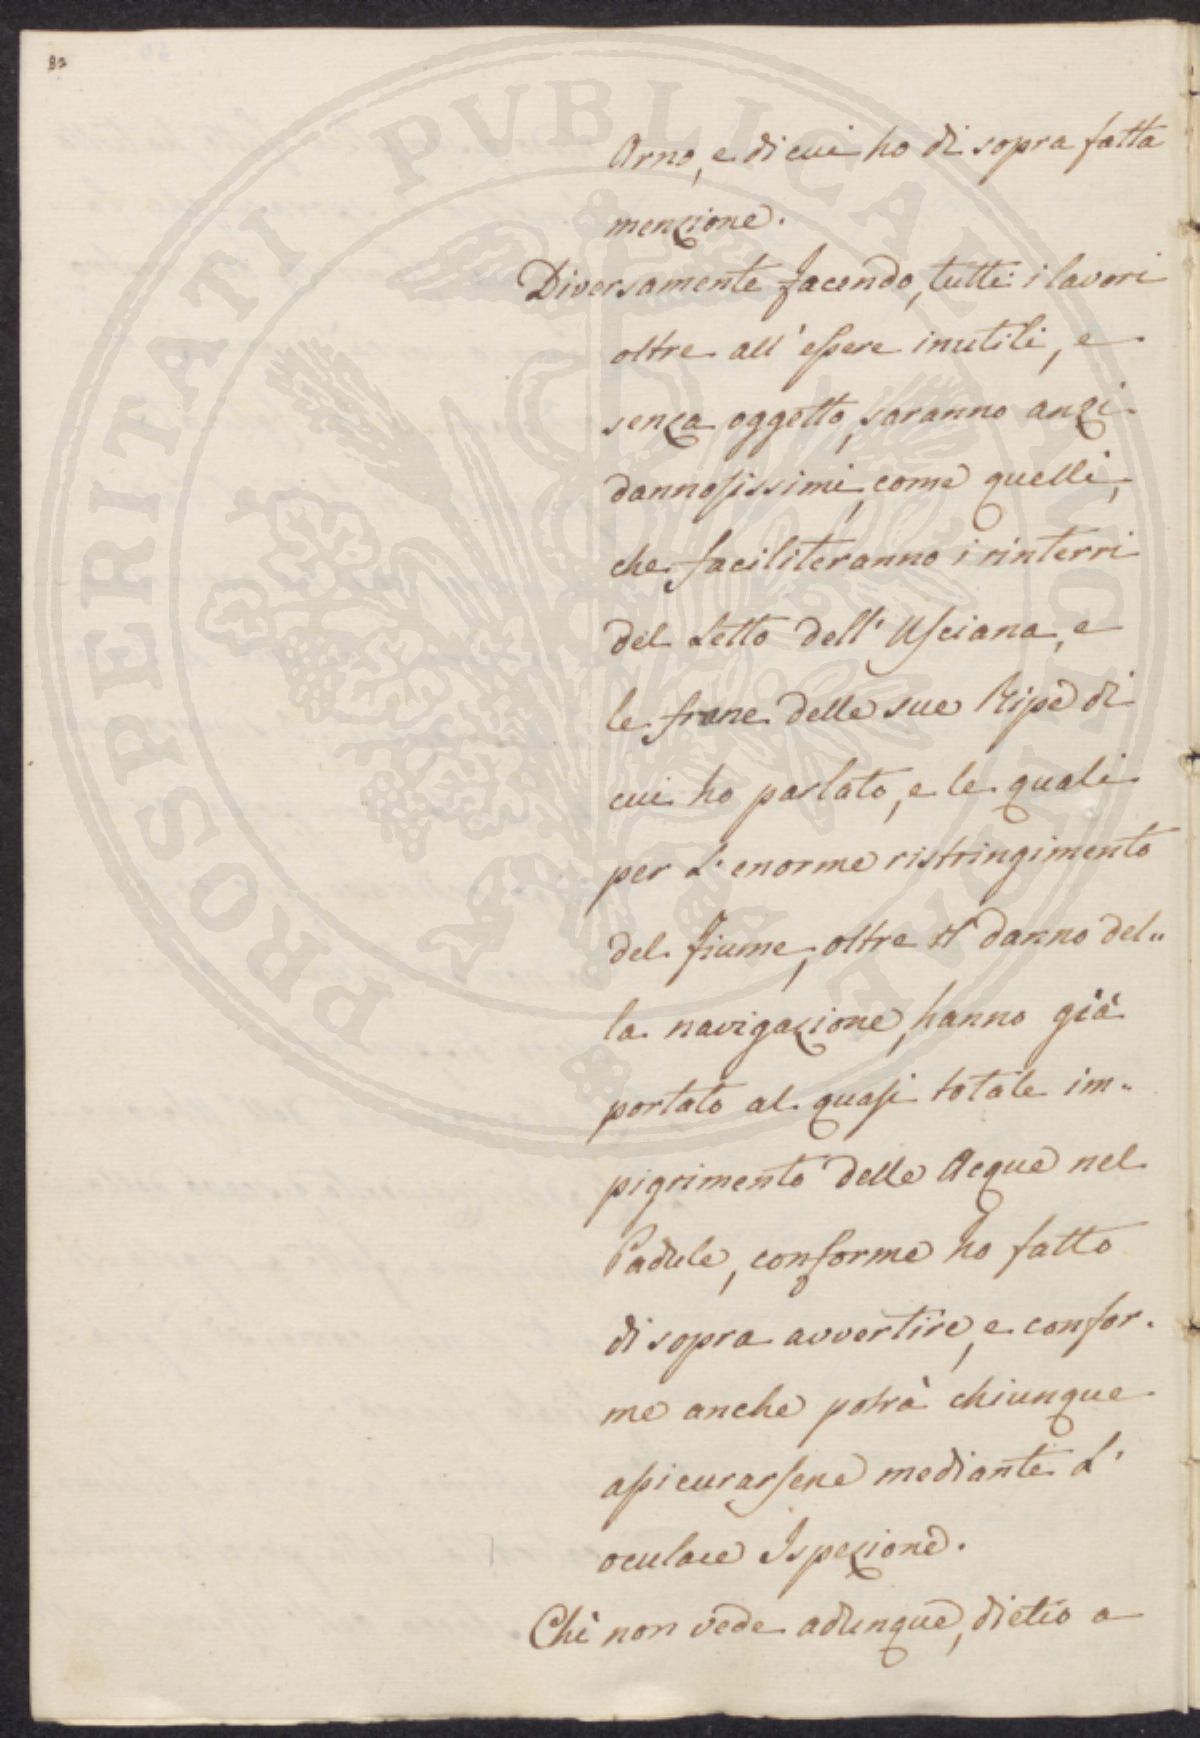 82
Arno, e di cui ho di sopra fatta
menzione.
Diversamente facendo, tutti i lavori
oltre all' essere inutili, e
senza oggetto, saranno anzi
dannosissimi, come quelli,
che faciliteranno i rinterri
del Letto dell' Usciana, e
le frane delle sue Ripe di
cui ho parlato, e le quali
per L' enorme ristringimento
del Fiume, oltre il danno del„
la navigazione, hanno già
portato al quasi totale im„
pigrimento delle Acque nel
Padule, conforme ho fatto
di sopra avvertire, e confor.
me anche potrà chiunque
assicurarsene mediante L'
oculare Ispezione.
Chi non vede adunque, dietro a
PROSPERITATI PUBLICAE AUGENDAE